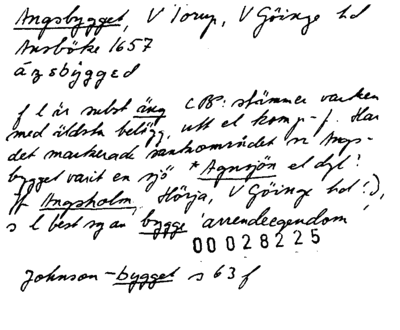 Ängsbygget, V Torup, V Göinge hd
Ansböke 1657
ázsbýgged
f l är subst äng CB: stämmer varken
med äldsta belägg, utt el komp-f. Har
det markerade sankområdet n Ängs-
bygget varit en sjö *Agnsjön el dyl?
Jf Ängsholm, Hörja, V Göinge hd!),
s l best sg an bygge 'arrendeegendom'
00028225
Johnson-bygget s 63 f